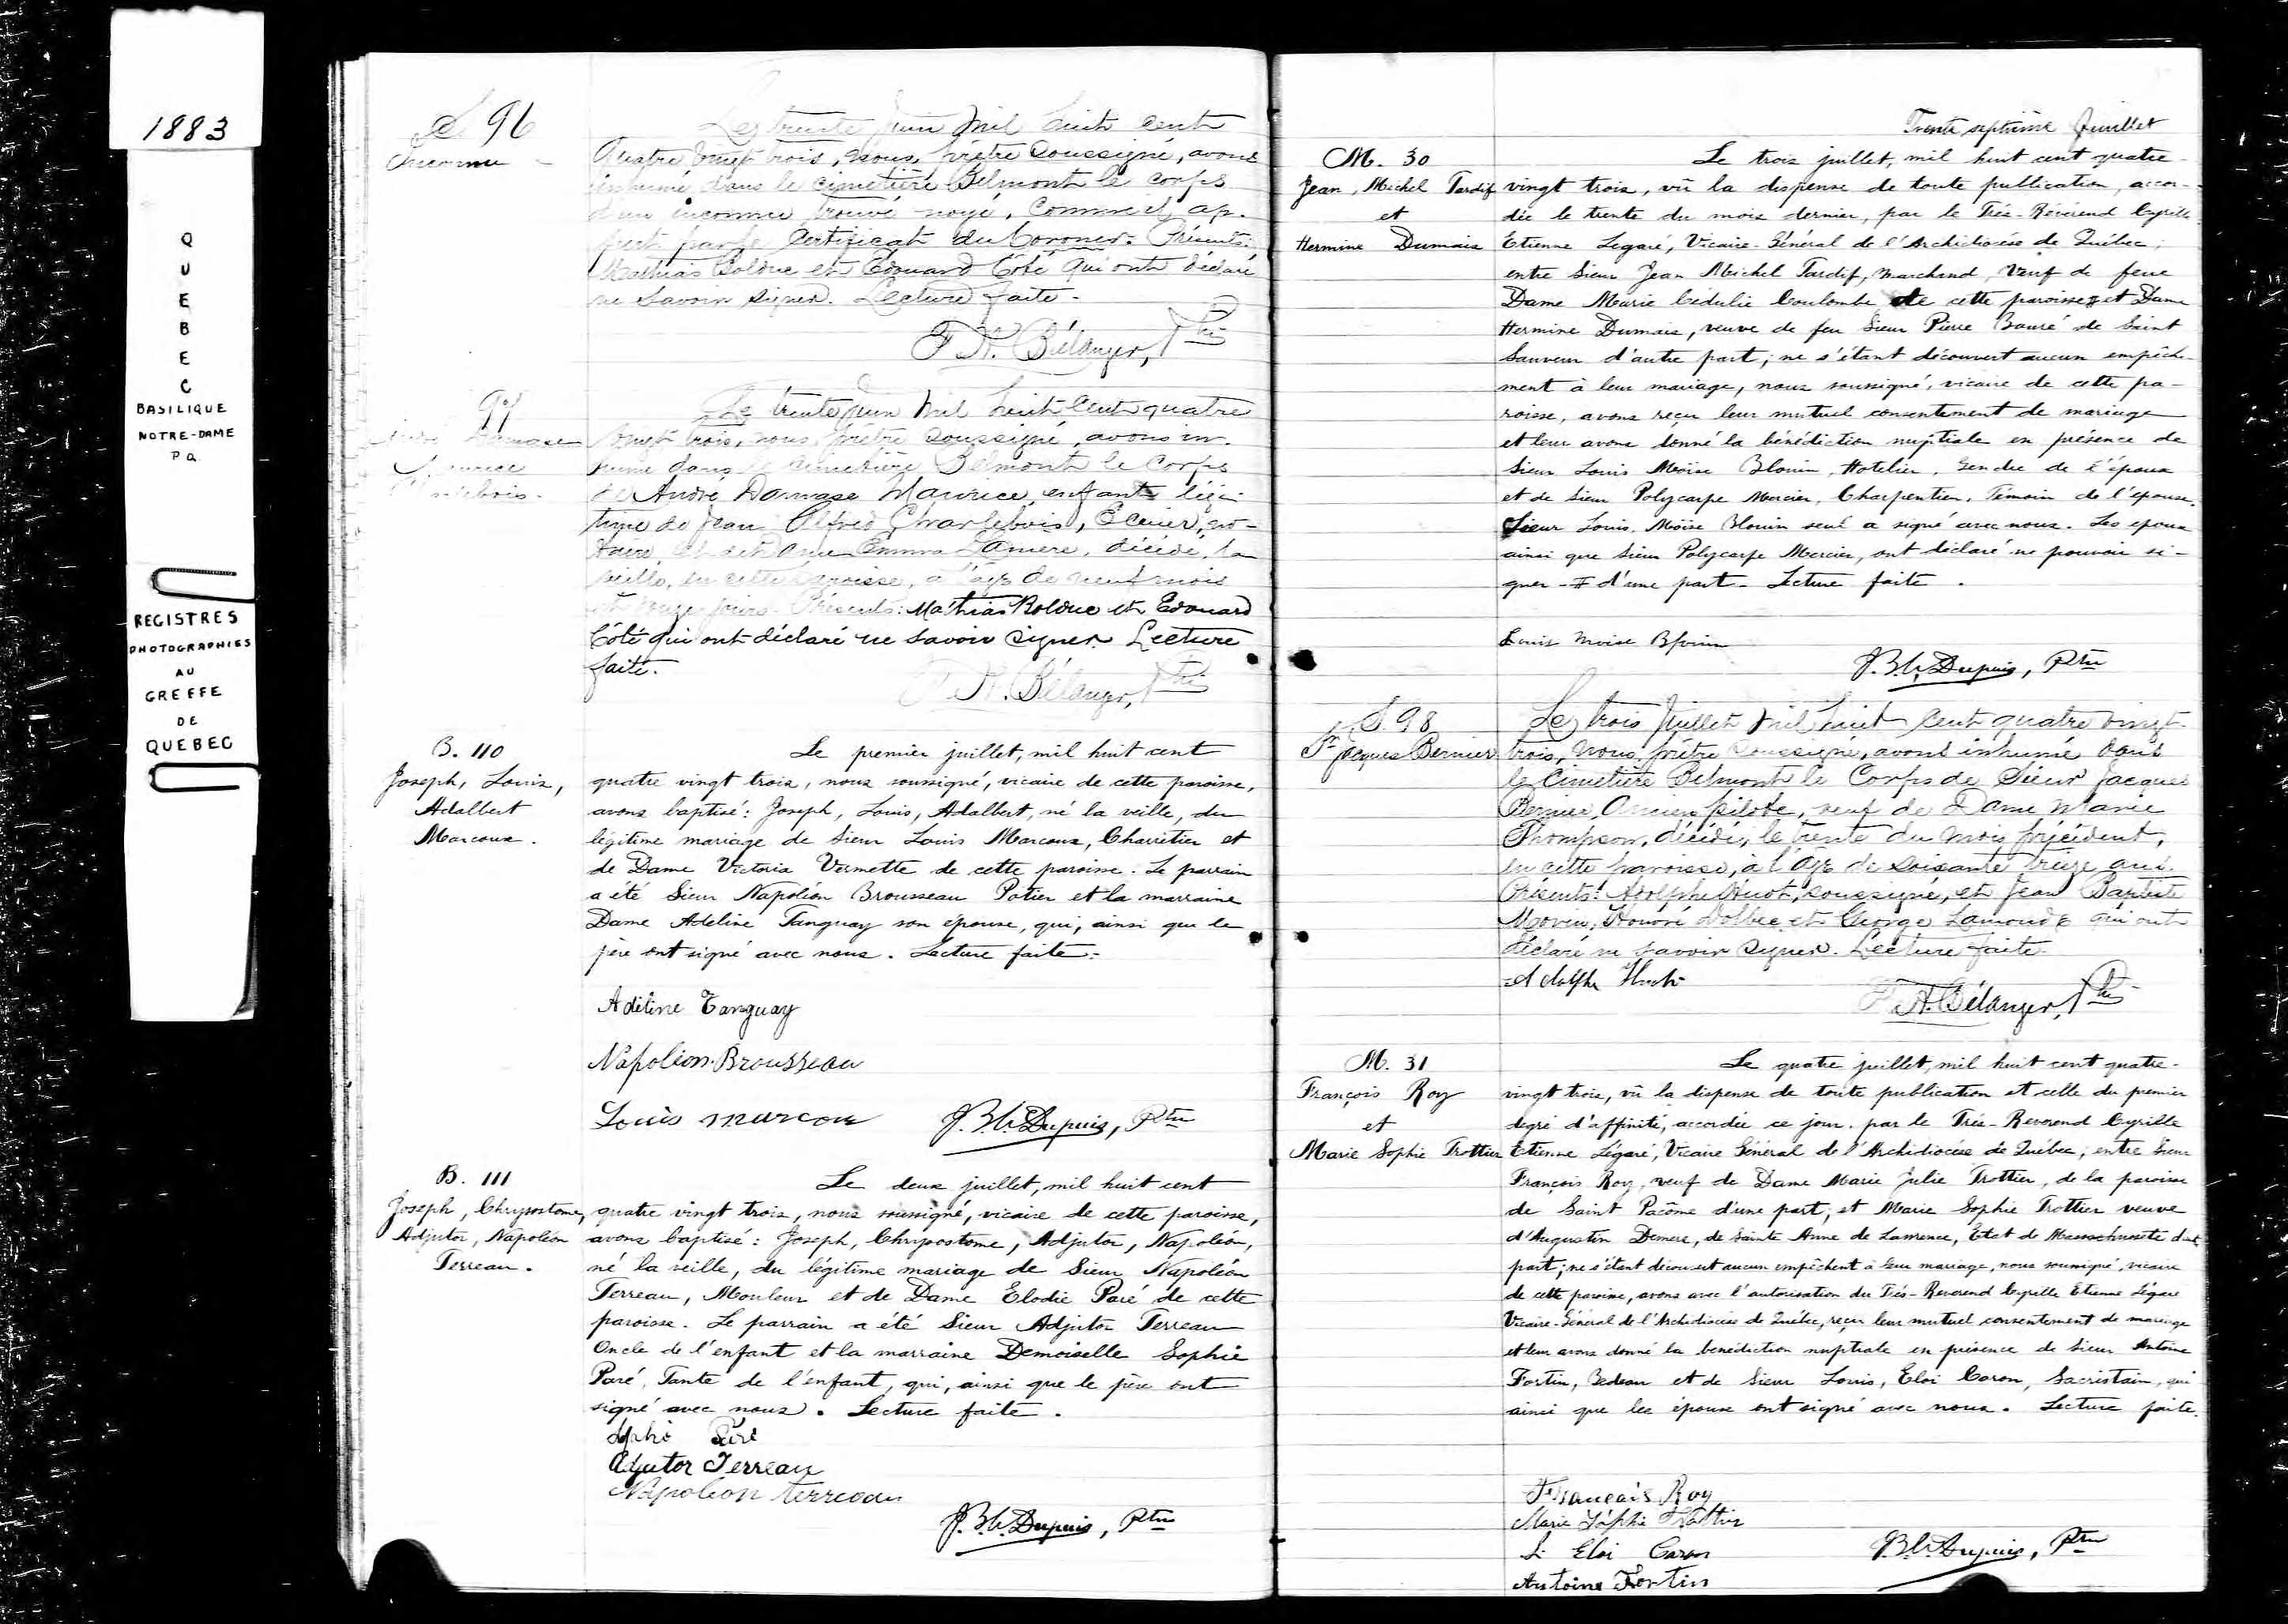 1883
QUEBEC
BASILIQUE
NOTRE-DAME
P Q
REGISTRES
PHOTOGRAPHIES
AU
GREFFE
DE
QUEBEC
S 96
Inconnu
Le trente Juin Mil huit cent
Quatre vingt trois, nous, prêtre soussigné, avons
inhumé dans le cimetière Belmont le corps
d'un inconnu trouvé noyé, comme il ap-
pert par le Certificat du Coroner. Présents:
Mathias Bolduc et Edouard Côté qui ont déclaré
ne savoir signer. Lecture faite.
F. A. Bélanger, Ptre
97
André Damase
Maurice
Charlebois.
Le trente Juin Mil huit cent quatre
vingt trois, nous, prêtre soussigné, avons in-
humé dans le cimetière Belmont le corps
de André Damase Maurice, enfant légi-
time de Jean Alfred Charlebois, Ecuier, no-
taire et de Dame Emma décédé, la
veille, en cette paroisse, à l'âge de neuf mois
et jours. Présents: Mathias Bolduc et Edouard
Côté qui ont déclaré ne savoir signer. Lecture
faite.
F. A. Bélanger, Ptre
B. 110
Joseph, Louis,
Adalbert
Marcoux.
Le premier juillet, mil huit cent
quatre vingt trois, nous soussigné, vicaire de cette paroisse,
avons baptisé: Joseph, Louis, Adalbert, né la veille, du
légitime mariage de Sieur Louis Marcoux, Charretier et
de Dame Victoria Vermette de cette paroisse. Le parrain
a été Sieur Napoléon Brousseau Potier et la marraine
Dame Adeline Tanguay son épouse, qui, ainsi que le
père ont signé avec nous. Lecture faite.
Adéline Tanguay
Napoléon Brousseau
Louis Marcoux
J. B. C. Dupuis, Ptre
B. 111
Joseph, Chrysostome,
Adjutor, Napoléon
Terreau.
Le deux juillet, mil huit cent
quatre vingt trois, nous soussigné, vicaire de cette paroisse,
avons baptisé: Joseph, Chrysostome, Adjutor, Napoléon,
né la veille, du légitime mariage de Sieur Napoléon
Terreau, Mouleur et de Dame Elodie Paré de cette
paroisse. Le parrain a été Sieur Adjutor Terreau
Oncle de l'enfant et la marraine Demoiselle Sophie
Paré, Tante de l'enfant, qui, ainsi que le père ont
signé avec nous. Lecture faite.
Sophie Paré
Adjutor Terreau
Napoléon Terreau
J. B. C. Dupuis, Ptre
Trente septième feuillet
M. 30
Jean, Michel Tardif
et
Hermine Dumais
Le trois juillet, mil huit cent quatre-
vingt trois, vû la dispense de toute publication, accor-
dée le trente du mois dernier, par le Très-Révérend Cyrille
Etienne Legaré, Vicaire-Général de l'Archidiocèse de Québec;
entre Sieur Jean Michel Tardif, marchand, Veuf de feue
Dame Marie Cédulie Coulombe de cette paroisse # et Dame
Hermine Dumais, veuve de feu Sieur Pierre Bauré de Saint
Sauveur d'autre part; ne s'étant découvert aucun empêche-
ment à leur mariage, nous soussigné, vicaire de cette pa-
roisse, avons reçu leur mutuel consentement de mariage
et leur avons donné la bénédiction nuptiale en présence de
Sieur Louis Moïse Blouin, Hotelier, Gendre de l'époux
et de Sieur Polycarpe Mercier, Charpentier, Témoin de l'épouse.
Sieur Louis Moïse Blouin seul a signé avec nous. Les epoux
ainsi que Sieur Polycarpe Mercier, ont déclaré ne pouvoir si-
gner - # d'une part - Lecture faite.
Louis Moise Blouin
J. B. C. Dupuis, Ptre
S. 98
Sr Jacques Bernier
Le trois Juillet Mil huit cent quatre vingt-
trois, nous, prêtre soussigné, avons inhumé dans
le cimetière Belmont le Corps de Sieur Jacques
Bernier, Ancien pilote, veuf de Dame Marie
Thompson, décédé, le trente du mois précédent,
en cette paroisse, à l'âge de soixante treize ans.
Présents: Adolphe Huot, soussigné, et Jean Baptiste
Morin, Honoré Dolbec et George Lamonde qui ont
déclaré ne savoir signer. Lecture faite
Adolphe Huot
F. A. Bélanger, Ptre
M. 31
François Roy
et
Marie Sophie Trottier
Le quatre juillet, mil huit cent quatre-
vingt trois, vû la dispense de toute publication et celle du premier
degré d'affinité, accordée ce jour, par le Très-Reverend Cyrille
Etienne Légaré, Vicaire Général de l'Archidiocèse de Québec; entre Sieur
François Roy, veuf de Dame Marie Julie Trottier, de la paroisse
de Saint Pacôme d'une part; et Marie Sophie Trottier veuve
d'Augustin Demers, de Sainte Anne de Lawrence, Etat de Massachusetts d'aut.
part; ne s'étant découvert aucun empêchent à leur mariage, nous soussigné, vicaire
de cette paroisse, avons avec l'autorisation du Très-Reverend Cyrille Etienne Légaré
Vicaire-Général de l'Archidiocèse de Québec, reçu leur mutuel consentement de mariage
et leur avons donné la benédiction nuptiale en présence de Sieur Antoine
Fortin, Bedeau et de Sieur Louis, Eloi Caron, Sacristain, qui
ainsi que les époux ont signé avec nous. Lecture faite.
François Roy
Marie Sophie Trottier
L. Eloi Caron
Antoine Fortin
J. B. C. Dupuis, Ptre